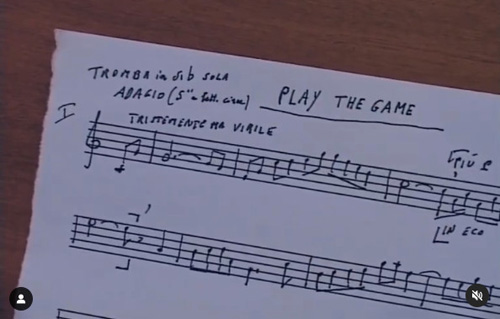 TROMBA in sib SOLA
ADAGIO (5" a batt. circa)
PLAY THE GAME
I
TRISTEMENTE MA VIRILE
PIÙ
IN ECO